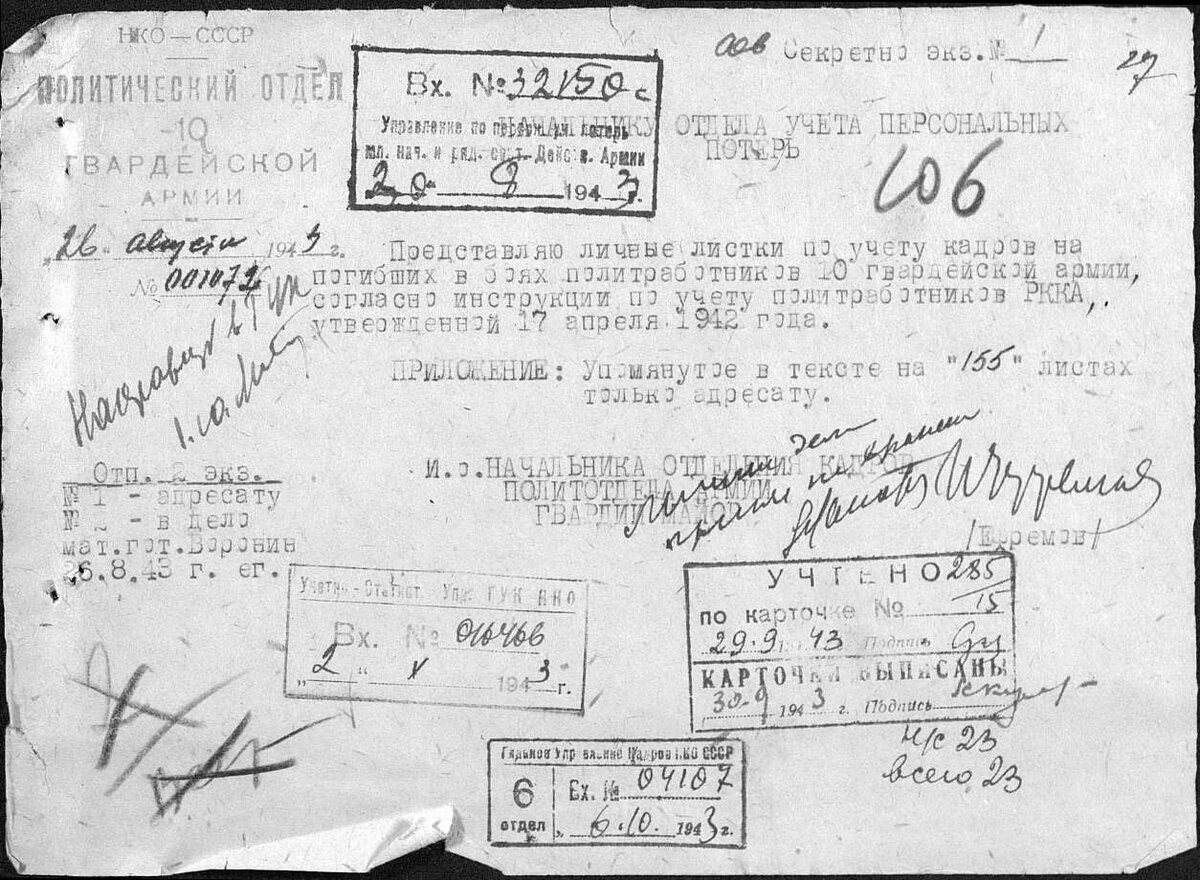 НКО — СССР
ПОЛИТИЧЕСКИЙ ОТДЕЛ
10
ГВАРДЕЙСКОЙ
АРМИИ
„26 августа 1943 г.
№ 001072
Секретно экз.№ 1
27
Вх. № 32150с
Управление по персон. потерь
мл. нач. и ряд. сост. Действ. Армии
1943 г.
НАЧАЛЬНИКУ ОТДЕЛА УЧЕТА ПЕРСОНАЛЬНЫХ
ПОТЕРЬ
106
Представляю личные листки по учету кадров на
погибших в боях политработников 10 гвардейской армии,
согласно инструкции по учету политработников РККА,
утвержденной 17 апреля 1942 года.
ПРИЛОЖЕНИЕ: Упомянутое в тексте на "155" листах
только адресату.
И.о.НАЧАЛЬНИКА ОТДЕЛЕНИЯ КАДРОВ
ПОЛИТОТДЕЛА АРМИИ
ГВАРДИИ МАЙОР
/Ефремов/
Отп. 2 экз.
№ 1 - адресату
№ 2 - в дело
мат.гот.Воронин
26.8.43 г. ег.
Учетно-Статист. Упр. ГУК НКО
Вх. № 016466
„2“ X 1943 г.
УЧТЕНО 285
по карточке № 15
29.9 1943 Подпись
КАРТОЧКИ ВЫПИСАНЫ
30.9 1943 г. Подпись
н/с 23
всего 23
Главное Управление Кадров НКО СССР
6
отдел
Вх. № 04107
„6.10. 1943 г.